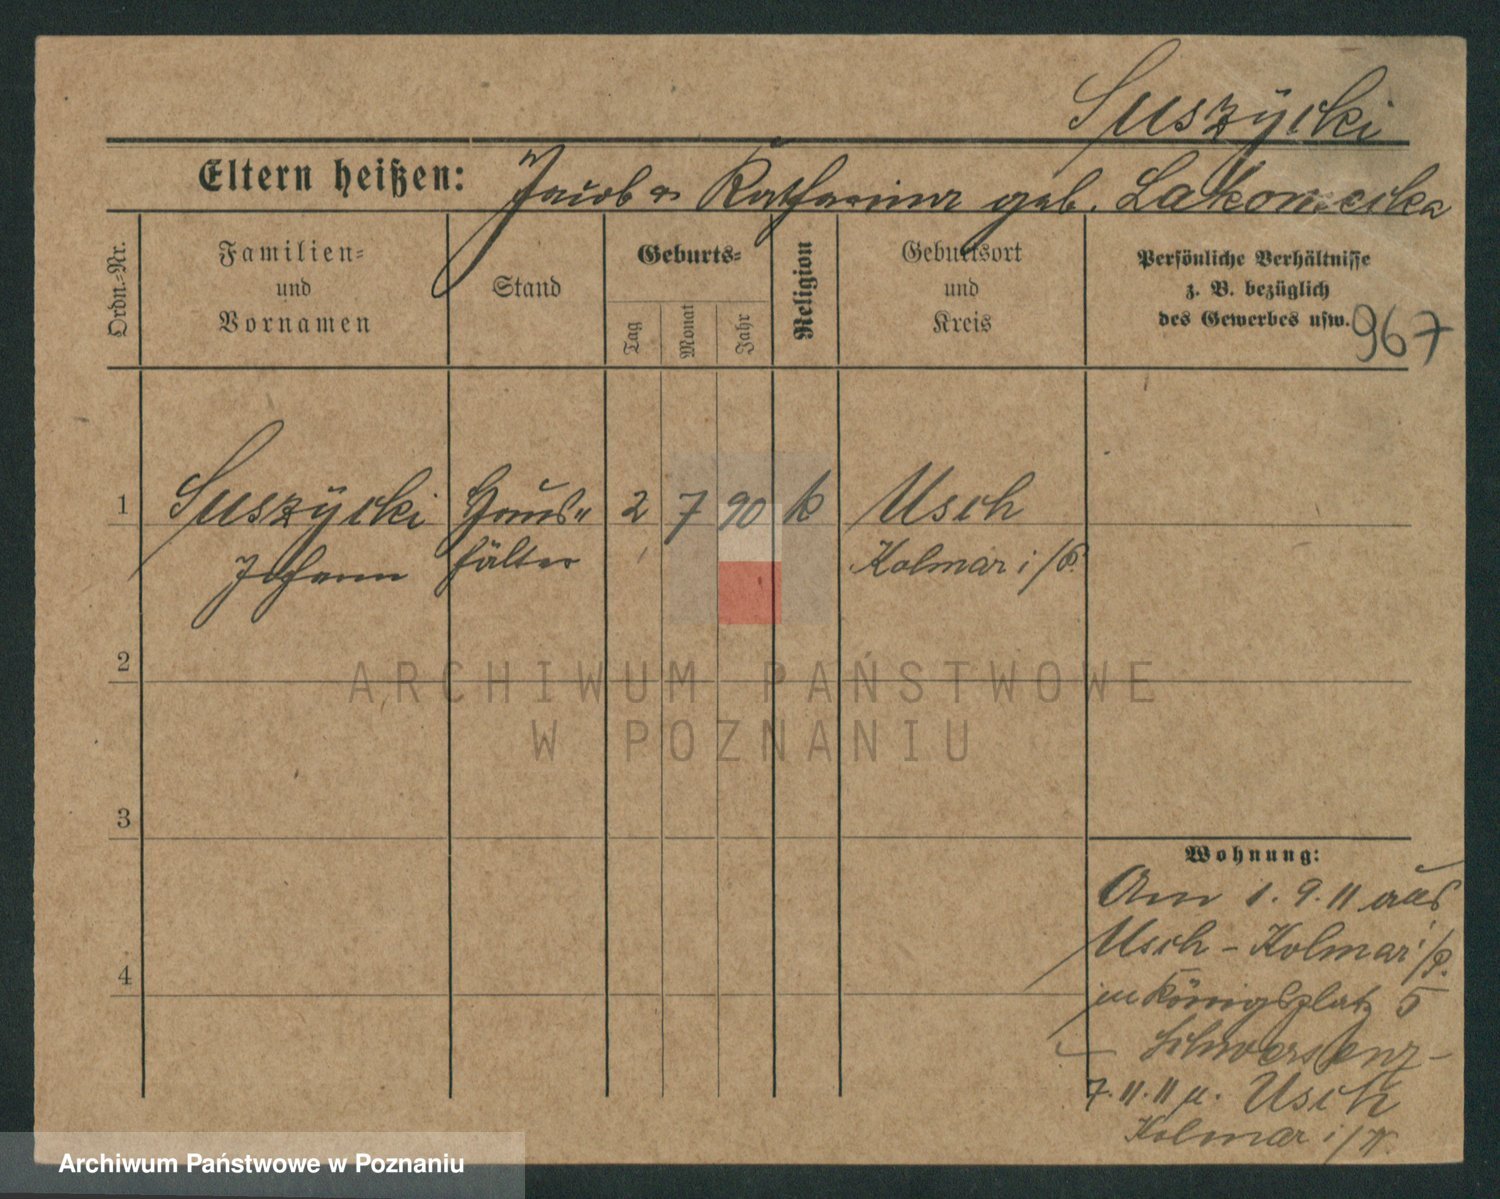 Suszycki
Eltern heißen: Jacob u Katharina geb.
Ordn.-Nr.
Familien=
und
Vornamen
Stand
Geburts=
Tag
Monat
Jahr
Religion
Geburtsort
und
Kreis
Persönliche Verhältnisse
z. B. bezüglich
des Gewerbes usw.
967
1 Suszÿcki Haus= 2 7 90 k Usch
Johann hälter Kolmar i/P.
2
3
4
Wohnung:
Am 1.9.11 aus
Usch - Kolmar i/P.
in Königsplatz 5
Schwersenz-
7.11.11 n. Usch
Kolmar i/
ARCHIWUM PAŃSTWOWE
W POZNANIU
Archiwum Państwowe w Poznaniu